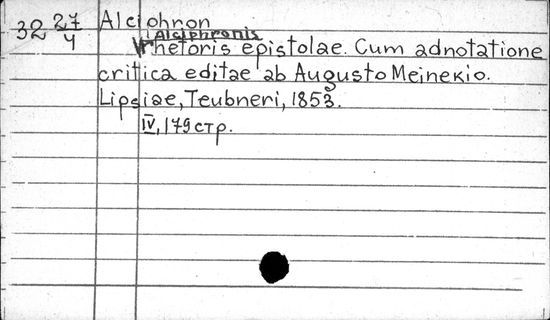 32 27/4 Alciohron
Alciphronis
rhetoris epistolae. Cum adnotatione
critica editae ab Augusto Meinekio.
Lipsiae, Teubneri, 1853.
IV, 179 стр.